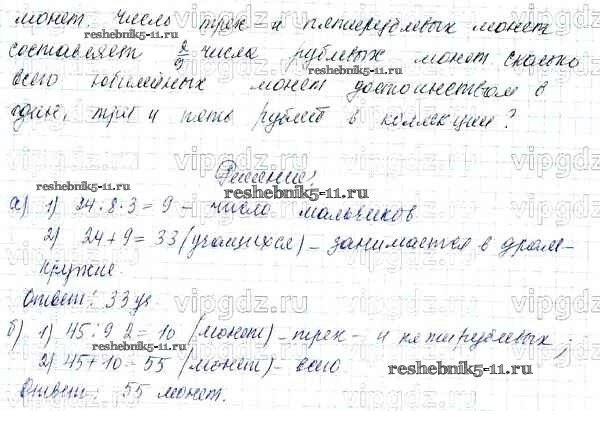 монет. Число трех и пятирублевых монет
составляет 2/9 числа рублевых монет. Сколько
всего юбилейных монет достоинством в
один, три и пять рублей в коллекции?
Решение:
а) 1) 24:8·3=9 - число мальчиков
2) 24+9=33 (учащихся) - занимается в драм-
кружке.
Ответ: 33 уч.
б) 1) 45:9·2=10 (монет) - трех- и пятирублевых;
2) 45+10=55 (монет) - всего
Ответ: 55 монет.
reshebnik5-11.ru
vipgdz.ru